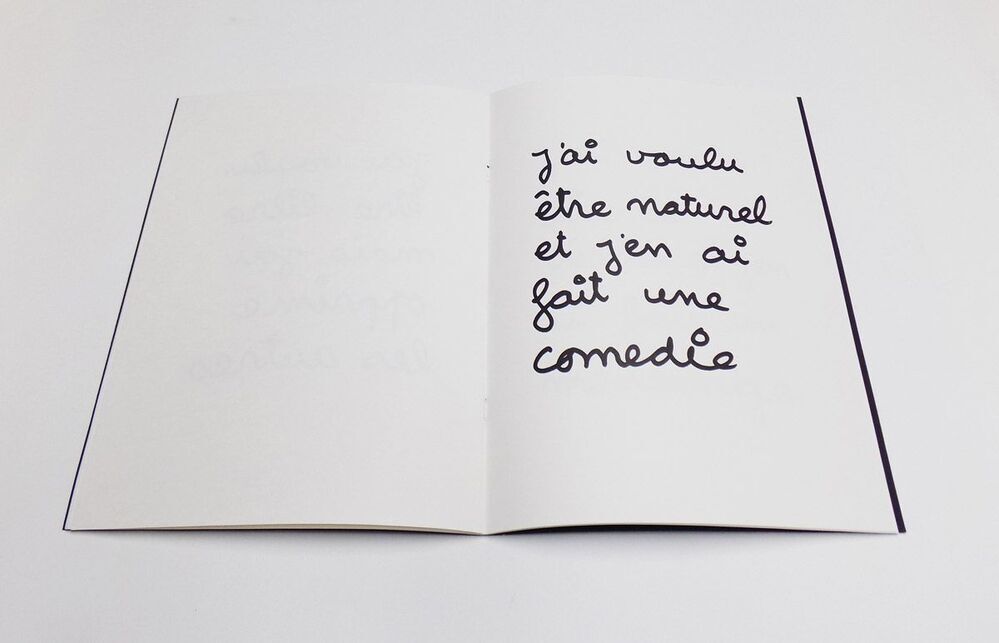 j'ai voulu
être naturel
et j'en ai
fait une
comedie